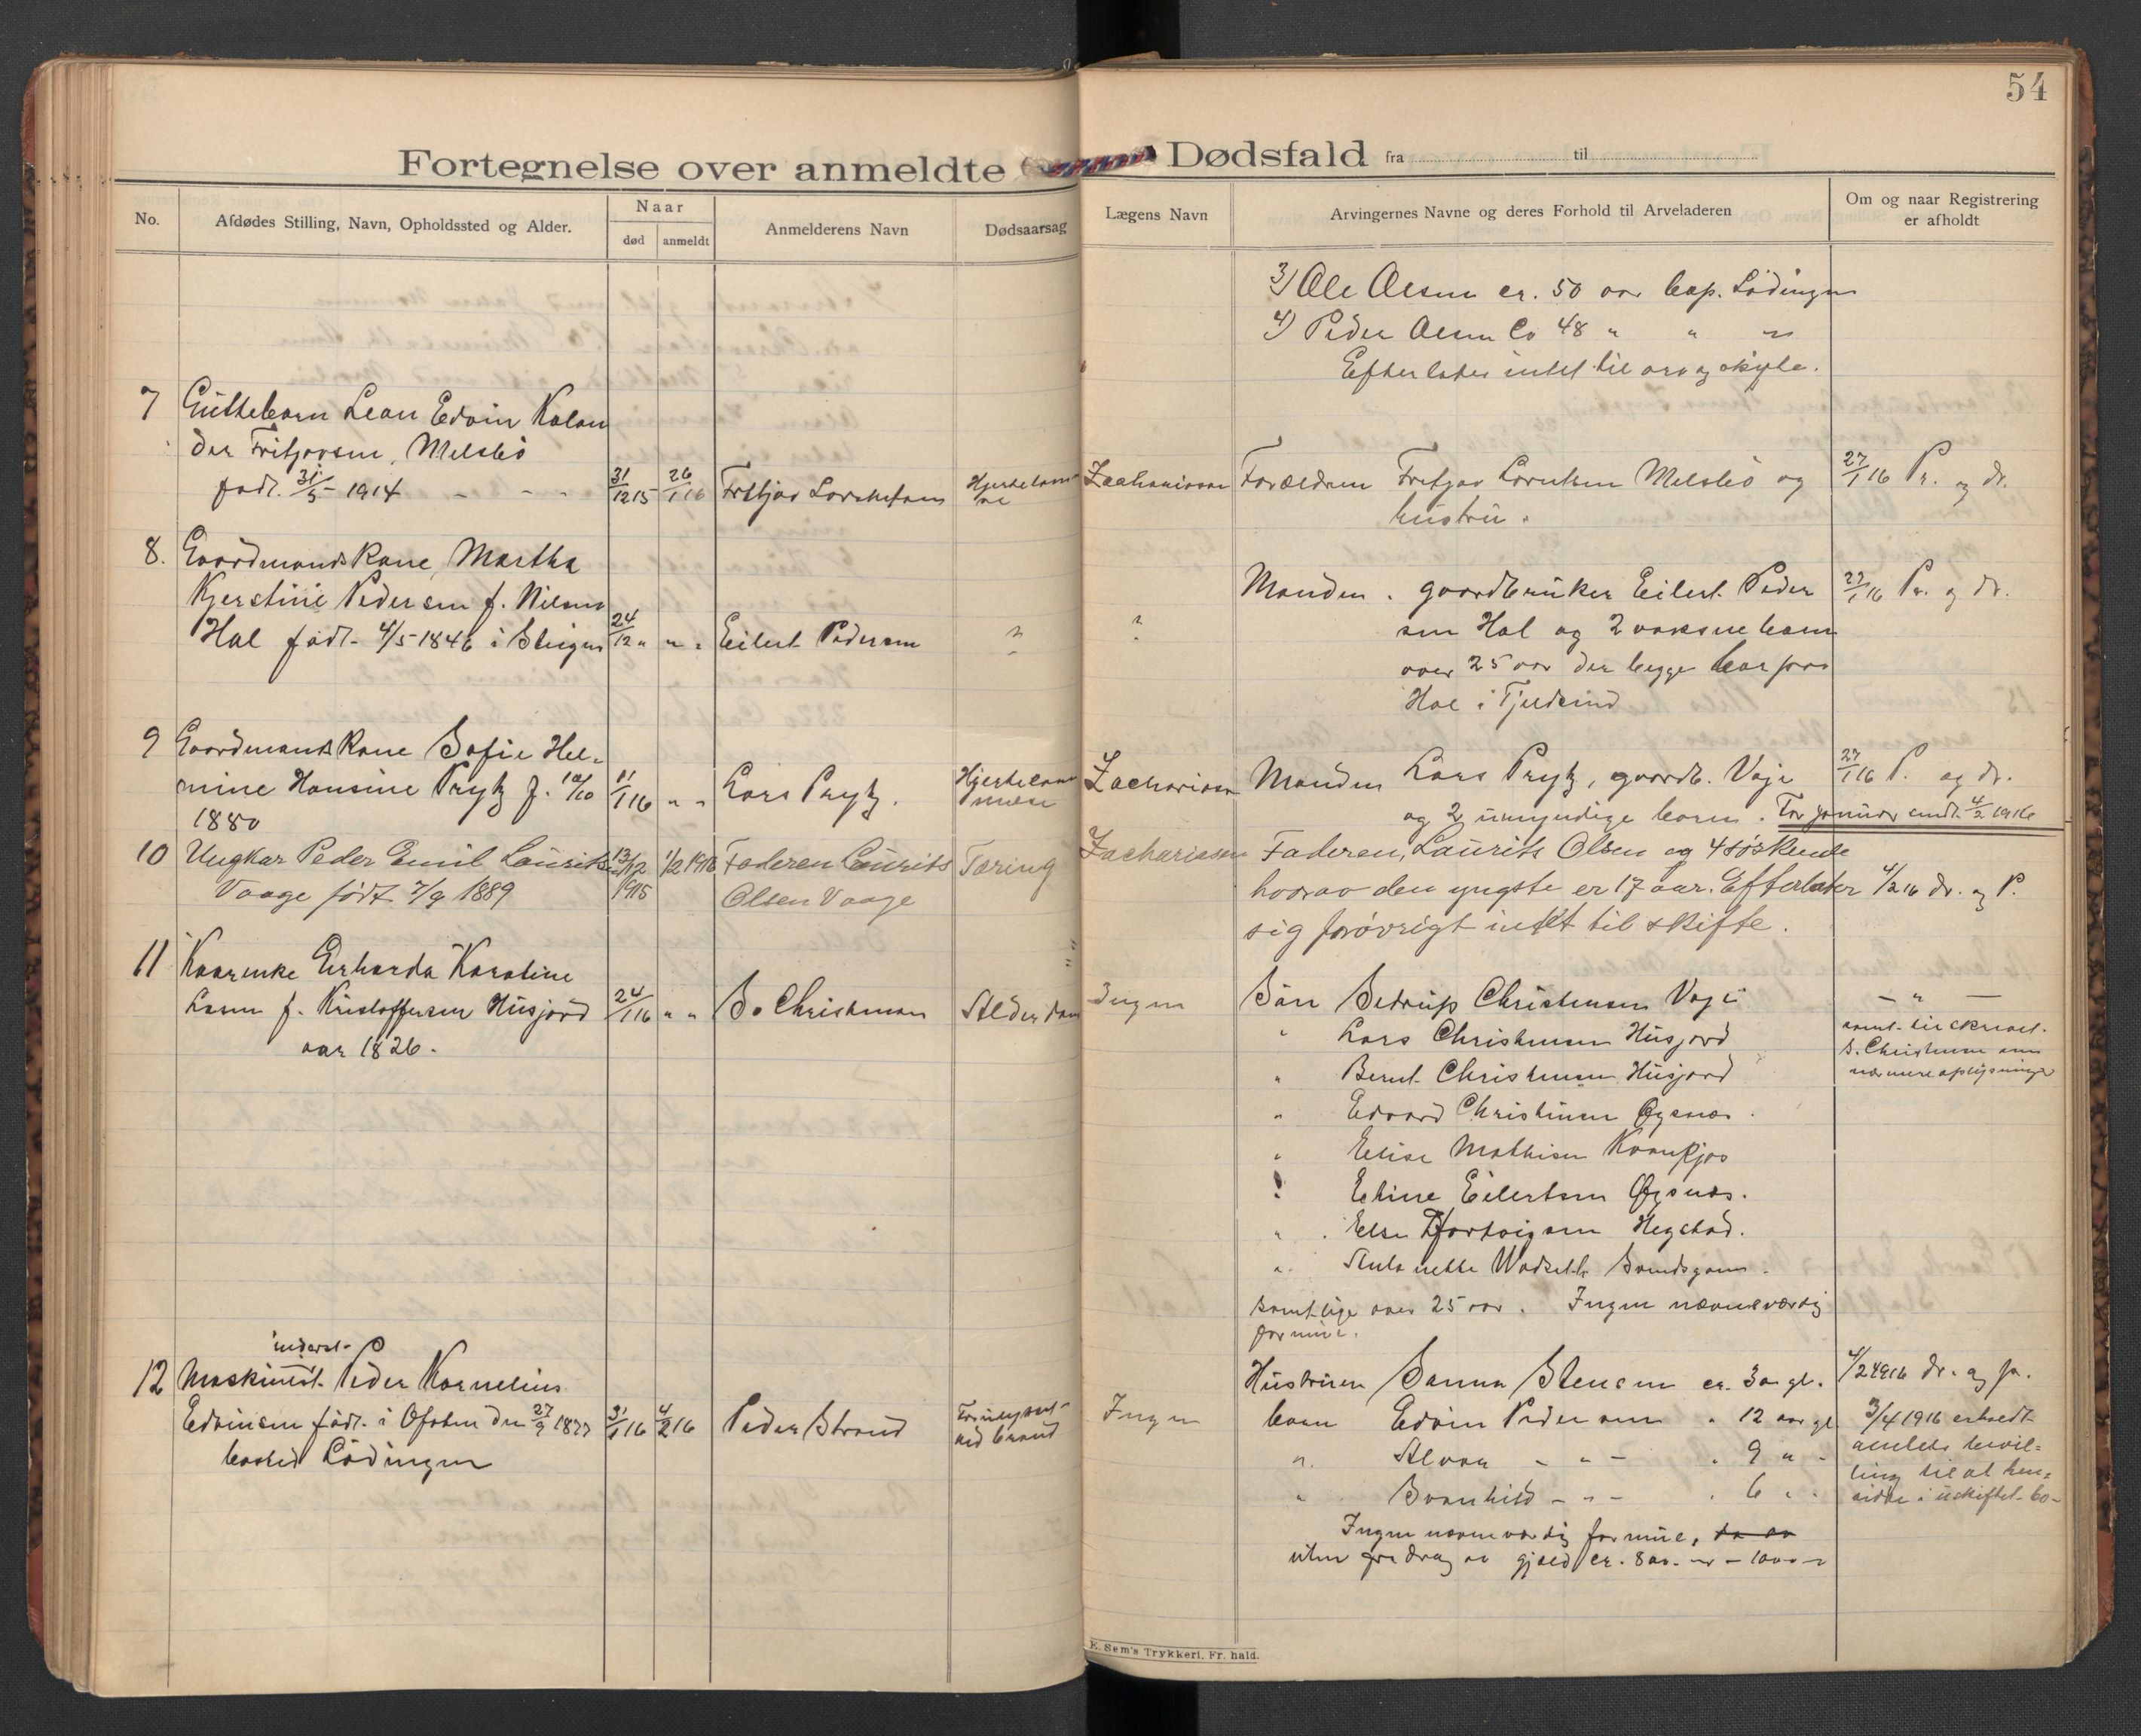 54
Fortegnelse over anmeldte Dødsfald fra til
No.
Afdødes Stilling, Navn, Opholdssted og Alder.
Naar
død
anmeldt
Anmelderens Navn
Dødsaarsag
Lægens Navn
Arvingernes Navne og deres Forhold til Arveladeren
Om og naar Registrering
er afholdt
3) Ole Olsen ca. 50 aar bop. Lødingen
4) Peder Olsen Ca 48 " " "
Efterlater intet til arv og skyld.
7 Guttebarn Lean Edvin Kolan
der Fritjovsen, Melsbø
født 31/5 - 1914 - - -
31/12 15
26/1 16
Fritjov
Zachariassen
Forældrene Fritjov Melsbø og
hustru.
27/1 16 Pr. og dr.
8. Gaardmandskone, Martha
Kjerstine Pedersen f. Nilsen
Hol født 4/5 1846 i
24/12 "
" "
Eilert Pedersen
?
?
Manden. gaardbruker Eilert Peder
sen Hol og 2 voksne barn
over 25 aar der begge bor paa
Hol i Tjeldsund
27/1 16 Pr. og dr.
9 Gaardmandskone Sofie Hel-
mine Hansine Prytz f. 10/10
1880
11/1 16
" "
Lars Prytz.
Zachariassen
Manden Lars Prytz, gaardb. Vaje
og 2 umyndige barn. For januar sendt 4/2 1916
27/1 16 P. og dr.
10 Ungkar Peder Emil Lauritsen
Vaage født 7/9 1889
13/12
1915
1/2 1916
Faderen Laurits
Olsen Vaage
Tæring
Zachariassen
Faderen, Laurits Olsen og 4 søskende
hvorav den yngste er 17 aar. Efterlater
sig forøvrigt intet til skifte.
4/2 16 dr. og P.
11 Kaarenke Gerharda Karoline
Lasen f. Kristoffersen Husjord
aar 1826.
24/1 16
" "
S. Christensen
Alderdom
Ingen
Søn Sedrup Christensen Vaje
" Lars Christensen Husjord
" Bernt Christensen Husjord
" Edvard Christensen Øysnes.
" Elise Mathisen Kvankjos
" Eline Eilertsen Øysnes.
" Else Hartvigsen Hegstad.
" nette
samtlige over 25 aar. Ingen nævneværdig
formue.
- " -
samt tilskrevet
S. Christensen om
nærmere oplysninger
12 Maskinist Peder Kornelius
inderst
Edvinsen født i Ofoten den 27/9 1877
bosted Lødingen
31/1 16
4/2 16
Peder Strand
ved brand
Ingen
Hustruen Sanna Stensen ca. 30 gl.
barn Edvin Pedersen " 12 aar gl
" Alvon - " - " 9 " -
" Svanhild - " - " 6 " "
Ingen nævneværdig formue,
uten fradrag av gjæld ca. 800 - 1000 -
4/2 1916 dr. og p.
3/4 1916 erholdt
amtets bevil-
ling til at hen-
sidde i uskiftet bo -
E. Sem's Trykkeri, Fr.hald.